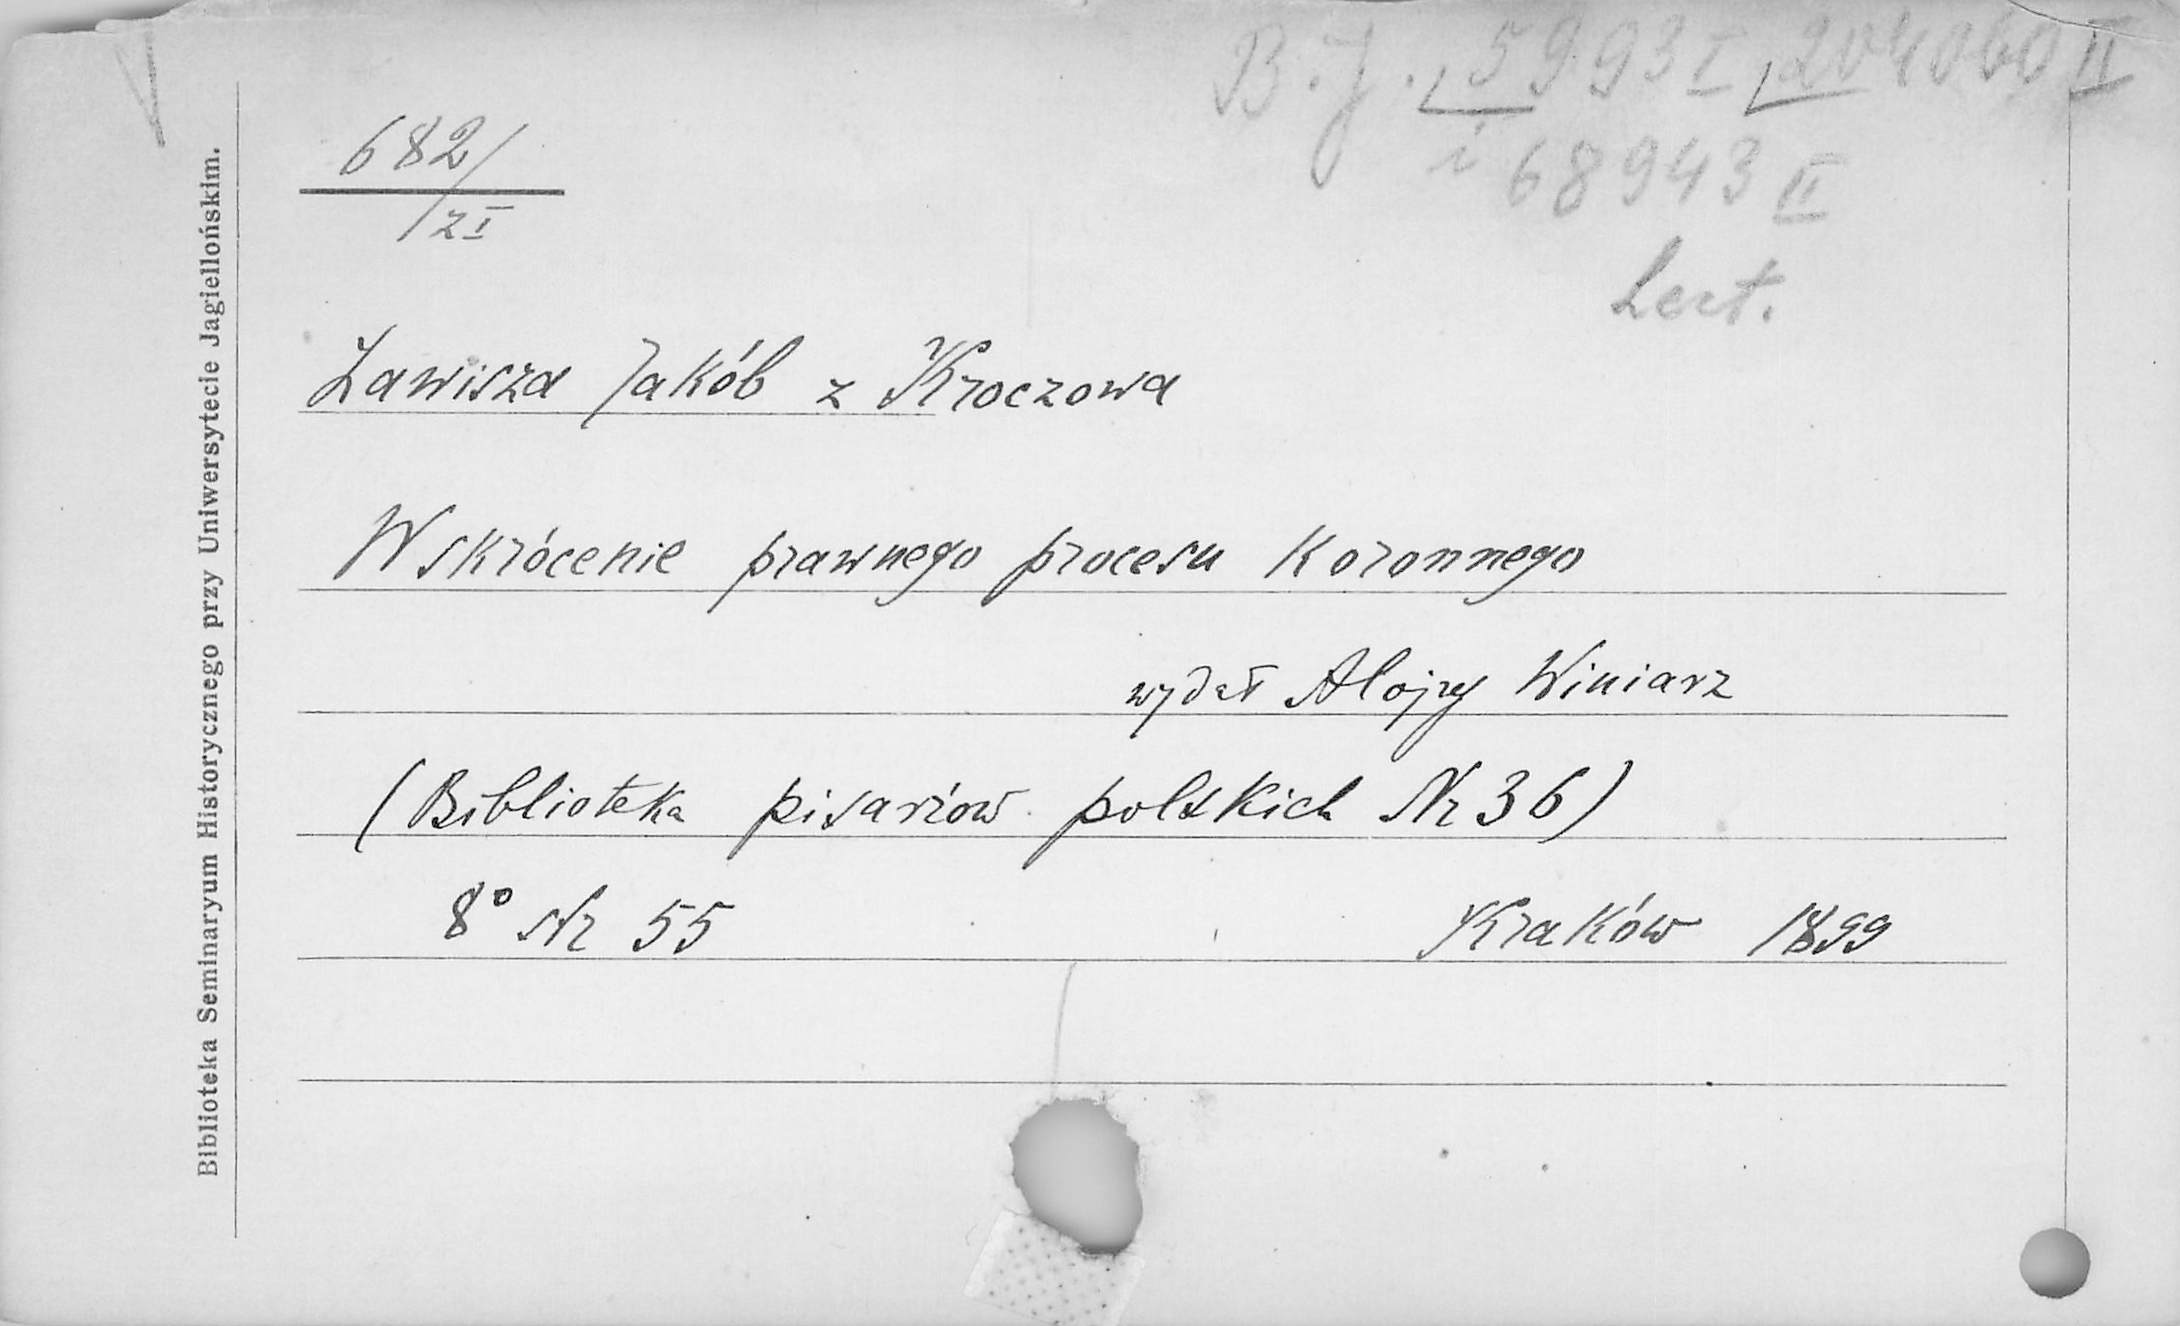 B.J. 5993 I, 204060 II
i 68943 II
Lect.
682/
/z I
Zawisza Jakób z Kroczowa
Wskrócenie prawnego procesu koronnego
wydał Alojzy Winiarz
(Biblioteka pisarzow polskich Nr 36)
8° Nr 55 Kraków 1899
Biblioteka Seminaryum Historycznego przy Uniwersytecie Jagiellońskim.